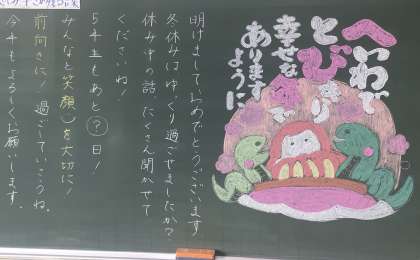 へいわで
とびきり
幸せな年で
あります
ように
明けましておめでとうございます
冬休みはゆっくり過ごせましたか?
休み中の話、たくさん聞かせて
くださいね!
5年生もあと?日!
みんなと笑顔を大切に!
前向きに!過ごしていこうね。
今年もよろしくお願いします。